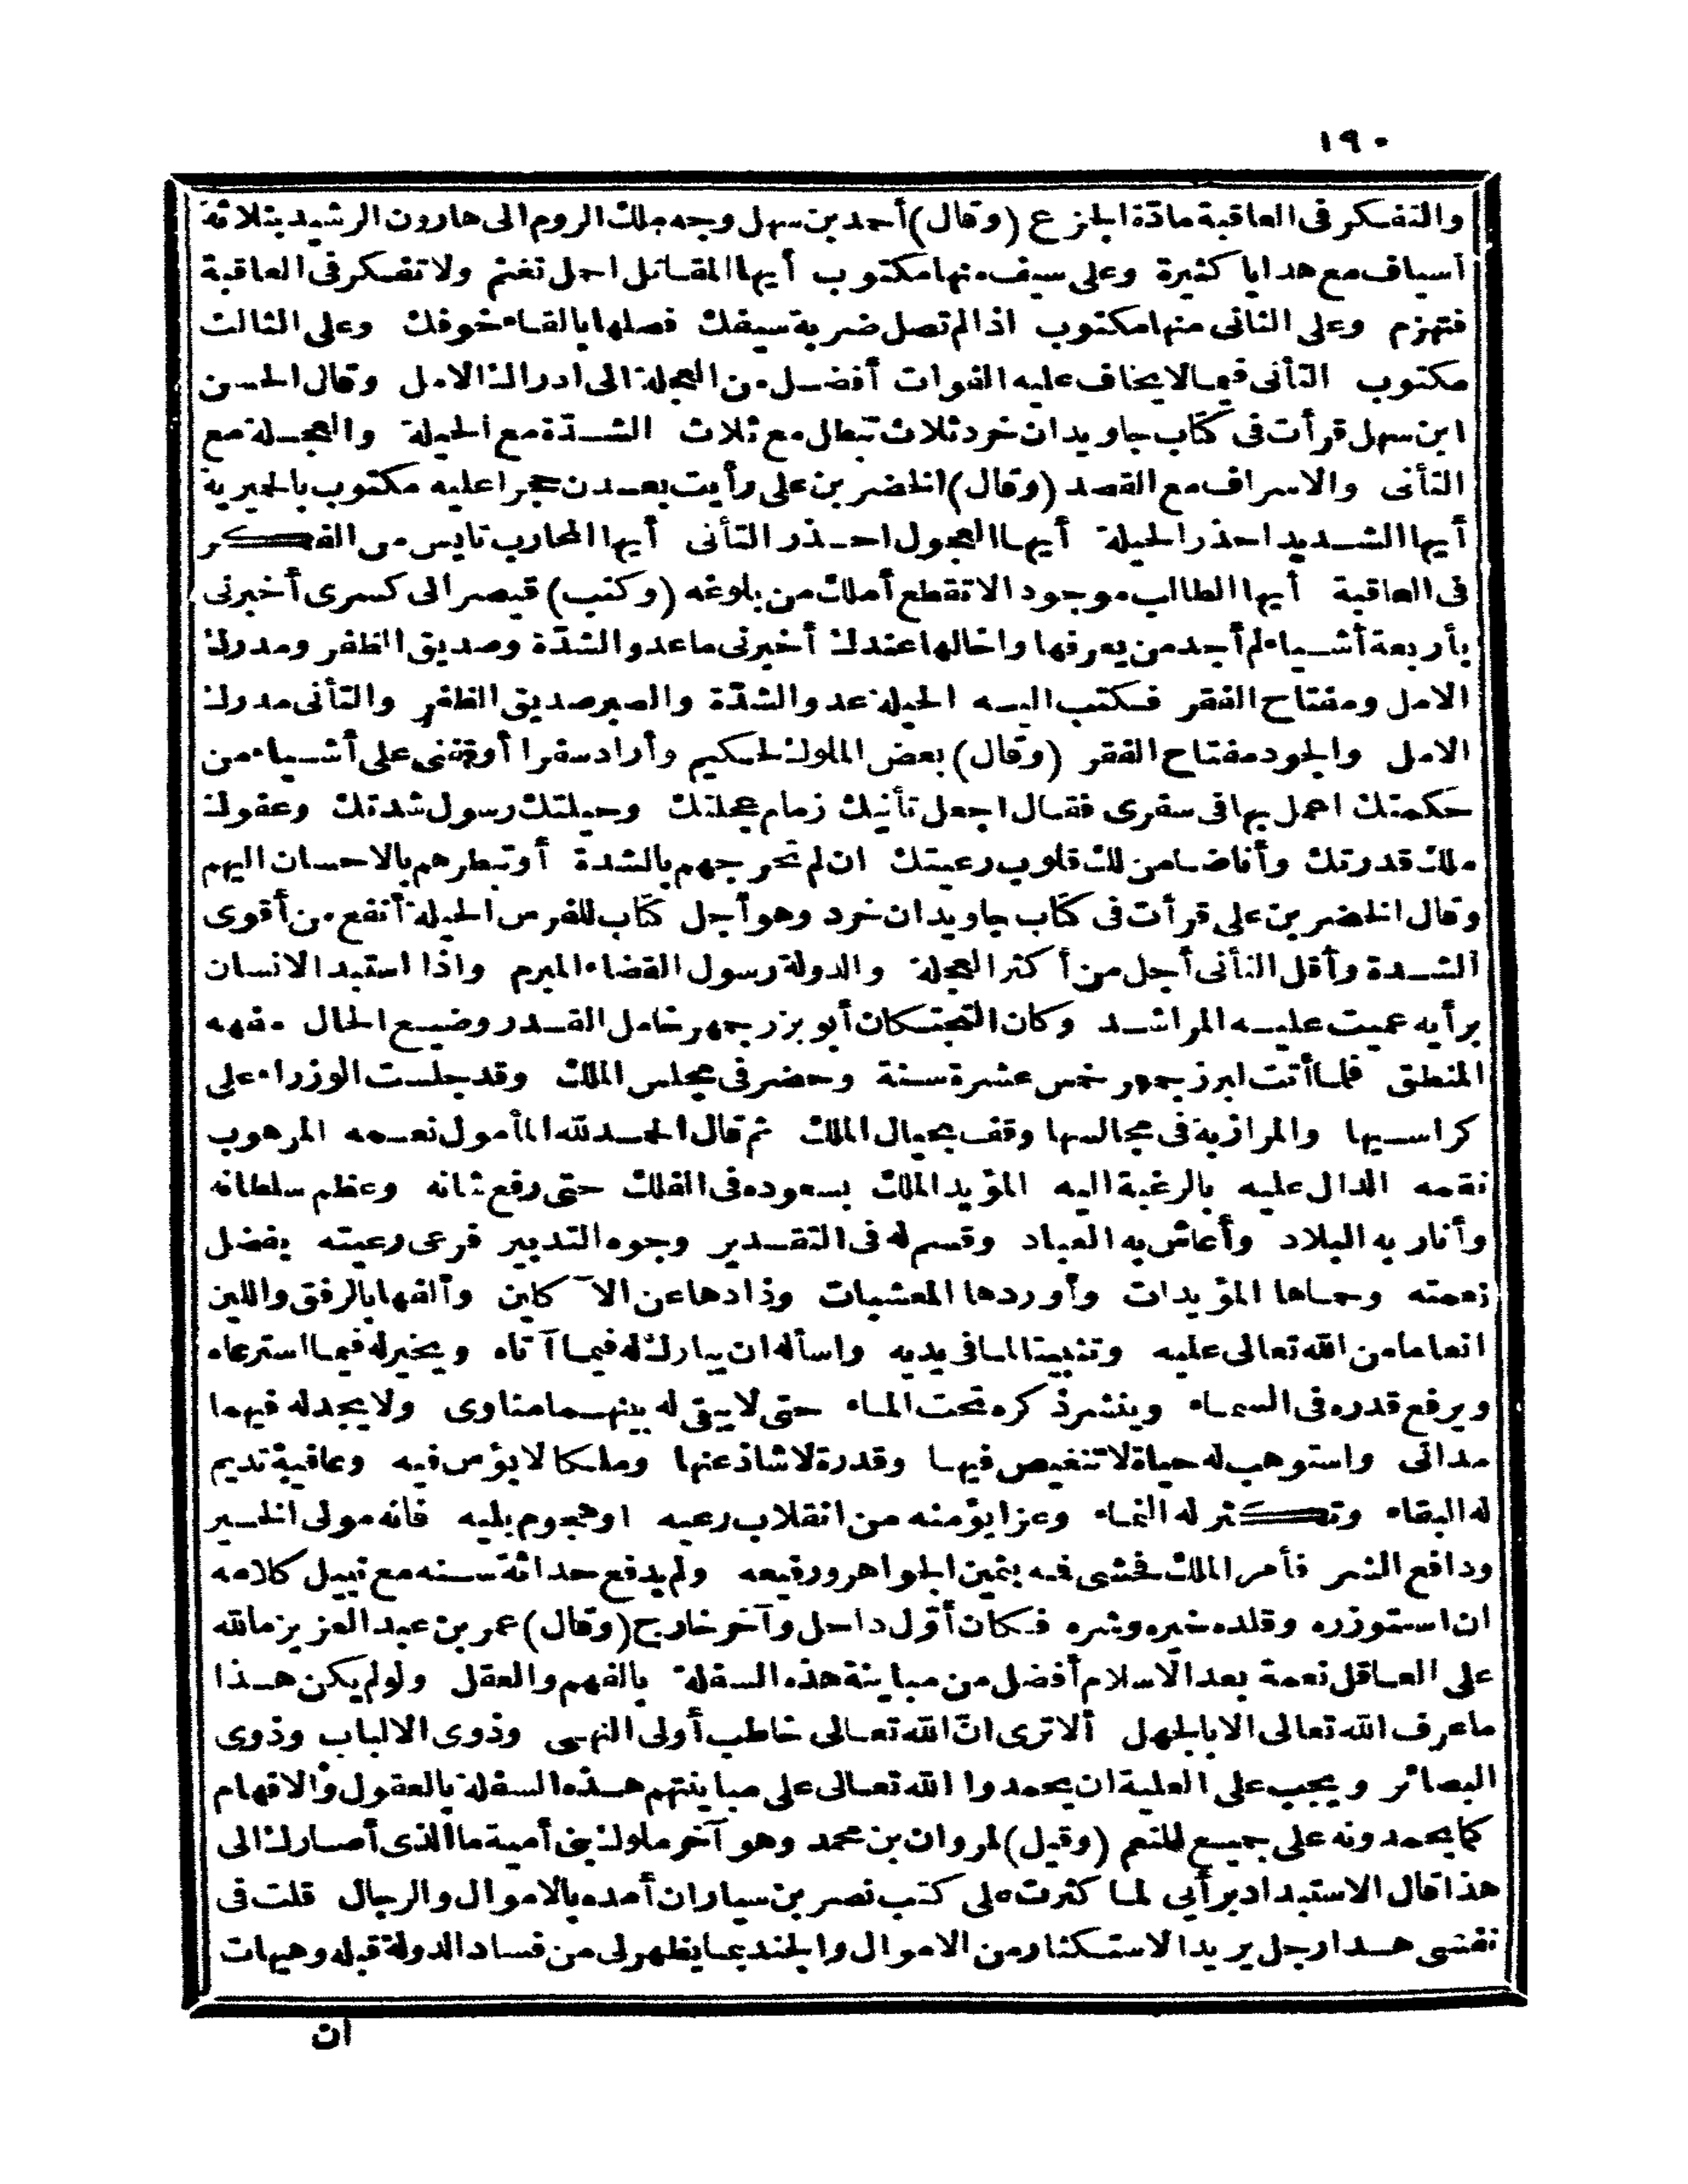 ١٩٠
والتفكر فى العاقبة مادّة الجزع (وقال) أحمد بن سهل وجه ملك الروم الى هارون الرشيد بثلاثة
أسياف مع هدايا كثيرة وعلى سيف منها مكتوب أيها المقاتل احمل تغنم ولا تفكر فى العاقبة
فتهزم وعلى الثانى منها مكتوب اذا لم تصل ضربة سيفك فصلها بالقاء خوفك وعلى الثالث
مكتوب التأنى فيما لا يخاف عليه الفوات أفضل من العجلة الى ادراك الامل وقال الحسن
ابن سهل قرأت فى كتاب جاويدان خرد ثلاث تبطل مع ثلاث الشدّة مع الحيلة والعجلة مع
التأنى والاسراف مع القصد (وقال) الخضر بن على رأيت بعدن حجرا عليه مكتوب بالحميرية
أيها الشديد احذر الحيلة أيها العجول احذر التأنى أيها المحارب تايس من الفكر
فى العاقبة أيها الطالب موجود الا تقطع أملك من بلوغه (وكتب) قيصر الى كسرى أخبرنى
بأربعة أشياء لم أجد من يعرفها واخالها عندك أخبرنى ما عدو الشدّة وصديق الظفر ومدرك
الامل ومفتاح الفقر فكتب اليه الحيلة عدو الشدّة والصبر صديق الظفر والتأنى مدرك
الامل والجود مفتاح الفقر (وقال) بعض الملوك لحكيم وأراد سفرا أوقفنى على أشياء من
حكمتك اعمل بها فى سفرى فقال اجعل تأنيك زمام عجلتك وحيلتك رسول شدتك وعفوك
ملك قدرتك وأنا ضامن لك قلوب رعيتك ان لم تحرجهم بالشدة أو تبطرهم بالاحسان اليهم
وقال الخضر بن على قرأت فى كتاب جاويدان خرد وهو أجل كتاب للفرس الحيلة أنفع من أقوى
الشدة وأقل التأنى أجل من أكثر العجلة والدولة رسول القضاء المبرم واذا استبد الانسان
برأيه عميت عليه المراشد وكان البختكان أبو بزرجمهر خامل القدر وضيع الحال مفهه
المنطق فلما أتت لبزرجمهر خمس عشرة سنة وحضر فى مجلس الملك وقد جلست الوزراء على
كراسيها والمرازبة فى مجالسها وقف بحيال الملك ثم قال الحمد لله المأمول نعمه المرهوب
نقمه الدال عليه بالرغبة اليه المؤيد الملك بسعوده فى الفلك حتى رفع شانه وعظم سلطانه
وأنار به البلاد وأعاش به العباد وقسم له فى التقدير وجوه التدبير فرعى رعيته بفضل
نعمته وحماها المؤيدات وأوردها المعشبات وذادها عن الآكلين وألفها بالرفق واللين
انعاما من الله تعالى عليه وتثبيتا لما فى يديه واسأله ان يبارك له فيما آتاه ويخير له فيما استرعاه
ويرفع قدره فى السماء وينشر ذكره تحت الماء حتى لا يبقى له بينهما مناوى ولا يجد له فيهما
مدانى واستوهب له حياة لا تنغيص فيها وقدرة لا شاذ عنها وملكا لا بؤس فيه وعافية تديم
له البقاء وتكثر له النماء وعزا يؤمنه من انقلاب رعيه او هجوم بليه فانه مولى الخير
ودافع الشر فأمر الملك فحشى فمه بثمين الجواهر ورفيعه ولم يدفع حداثة سنه مع نبيل كلامه
ان استوزره وقلده خيره وشره فكان أوّل داخل وآخر خارج (وقال) عمر بن عبد العزيز ما لله
على العاقل نعمة بعد الاسلام أفضل من مباينة هذه السفلة بالفهم والعقل ولو لم يكن هذا
ما عرف الله تعالى الا بالجهل ألا ترى انّ الله تعالى خاطب أولى النهى وذوى الالباب وذوى
البصائر ويجب على العلية ان يحمدوا الله تعالى على مباينتهم هذه السفلة بالعقول والافهام
كما يحمدونه على جميع النعم (وقيل) لمروان بن محمد وهو آخر ملوك بنى أمية ما الذى أصارك الى
هذا قال الاستبداد برأيى لما كثرت على كتب نصر بن سيار ان أمده بالاموال والرجال قلت فى
نفسى هذا رجل يريد الاستكثار من الاموال والجند بما يظهر لى من فساد الدولة قبله وهيهات
ان